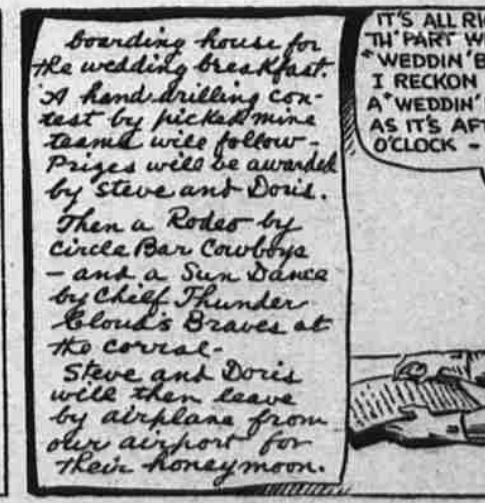 boarding house for
the wedding breakfast.
A hand drilling con-
test by picked mine
teams will follow -
Prizes will be awarded
by Steve and Doris.
Then a Rodeo by
Circle Bar Cowboys
- and a Sun Dance
by Chief Thunder
Cloud's Braves at
the corral-
Steve and Doris
will then leave
by airplane from
our airport for
their honeymoon.
IT'S ALL
TH' PART
"WEDDIN'
I RECKON
A "WEDDIN'
AS IT'S
O'CLOCK -